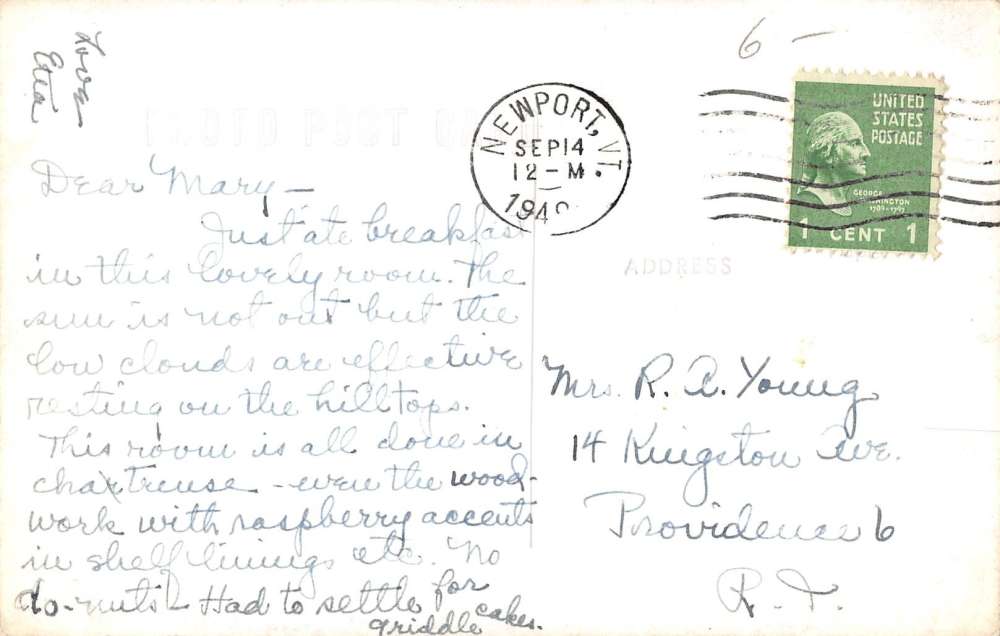 6 –
NEWPORT, VT.
SEP 14
12 – M
194
UNITED
STATES
POSTAGE
GEORGE
WASHINGTON
1 CENT 1
PHOTO POST CARD
ADDRESS
Dear Mary –
Just ate breakfast
in this lovely room. The
sun is not out but the
low clouds are effective
resting on the hilltops.
This room is all done in
chartreuse – even the wood-
work with raspberry accents
in shelf linings etc. No
do-nuts – Had to settle for
griddle cakes.
Love
Mrs. R. A. Young
14 Kingston Ave.
Providence 6
R. I.